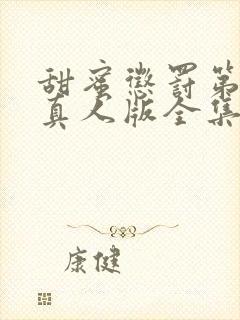 甜蜜惩罚第
真人版全集
康健